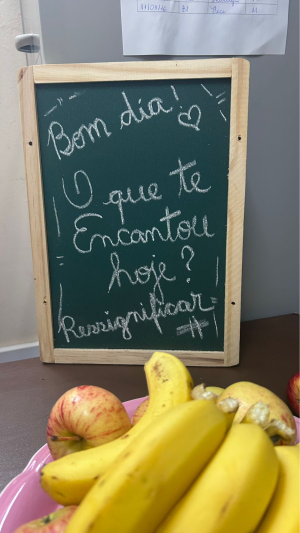 Bom dia!
O que te
Encantou
hoje?
Ressignificar
#